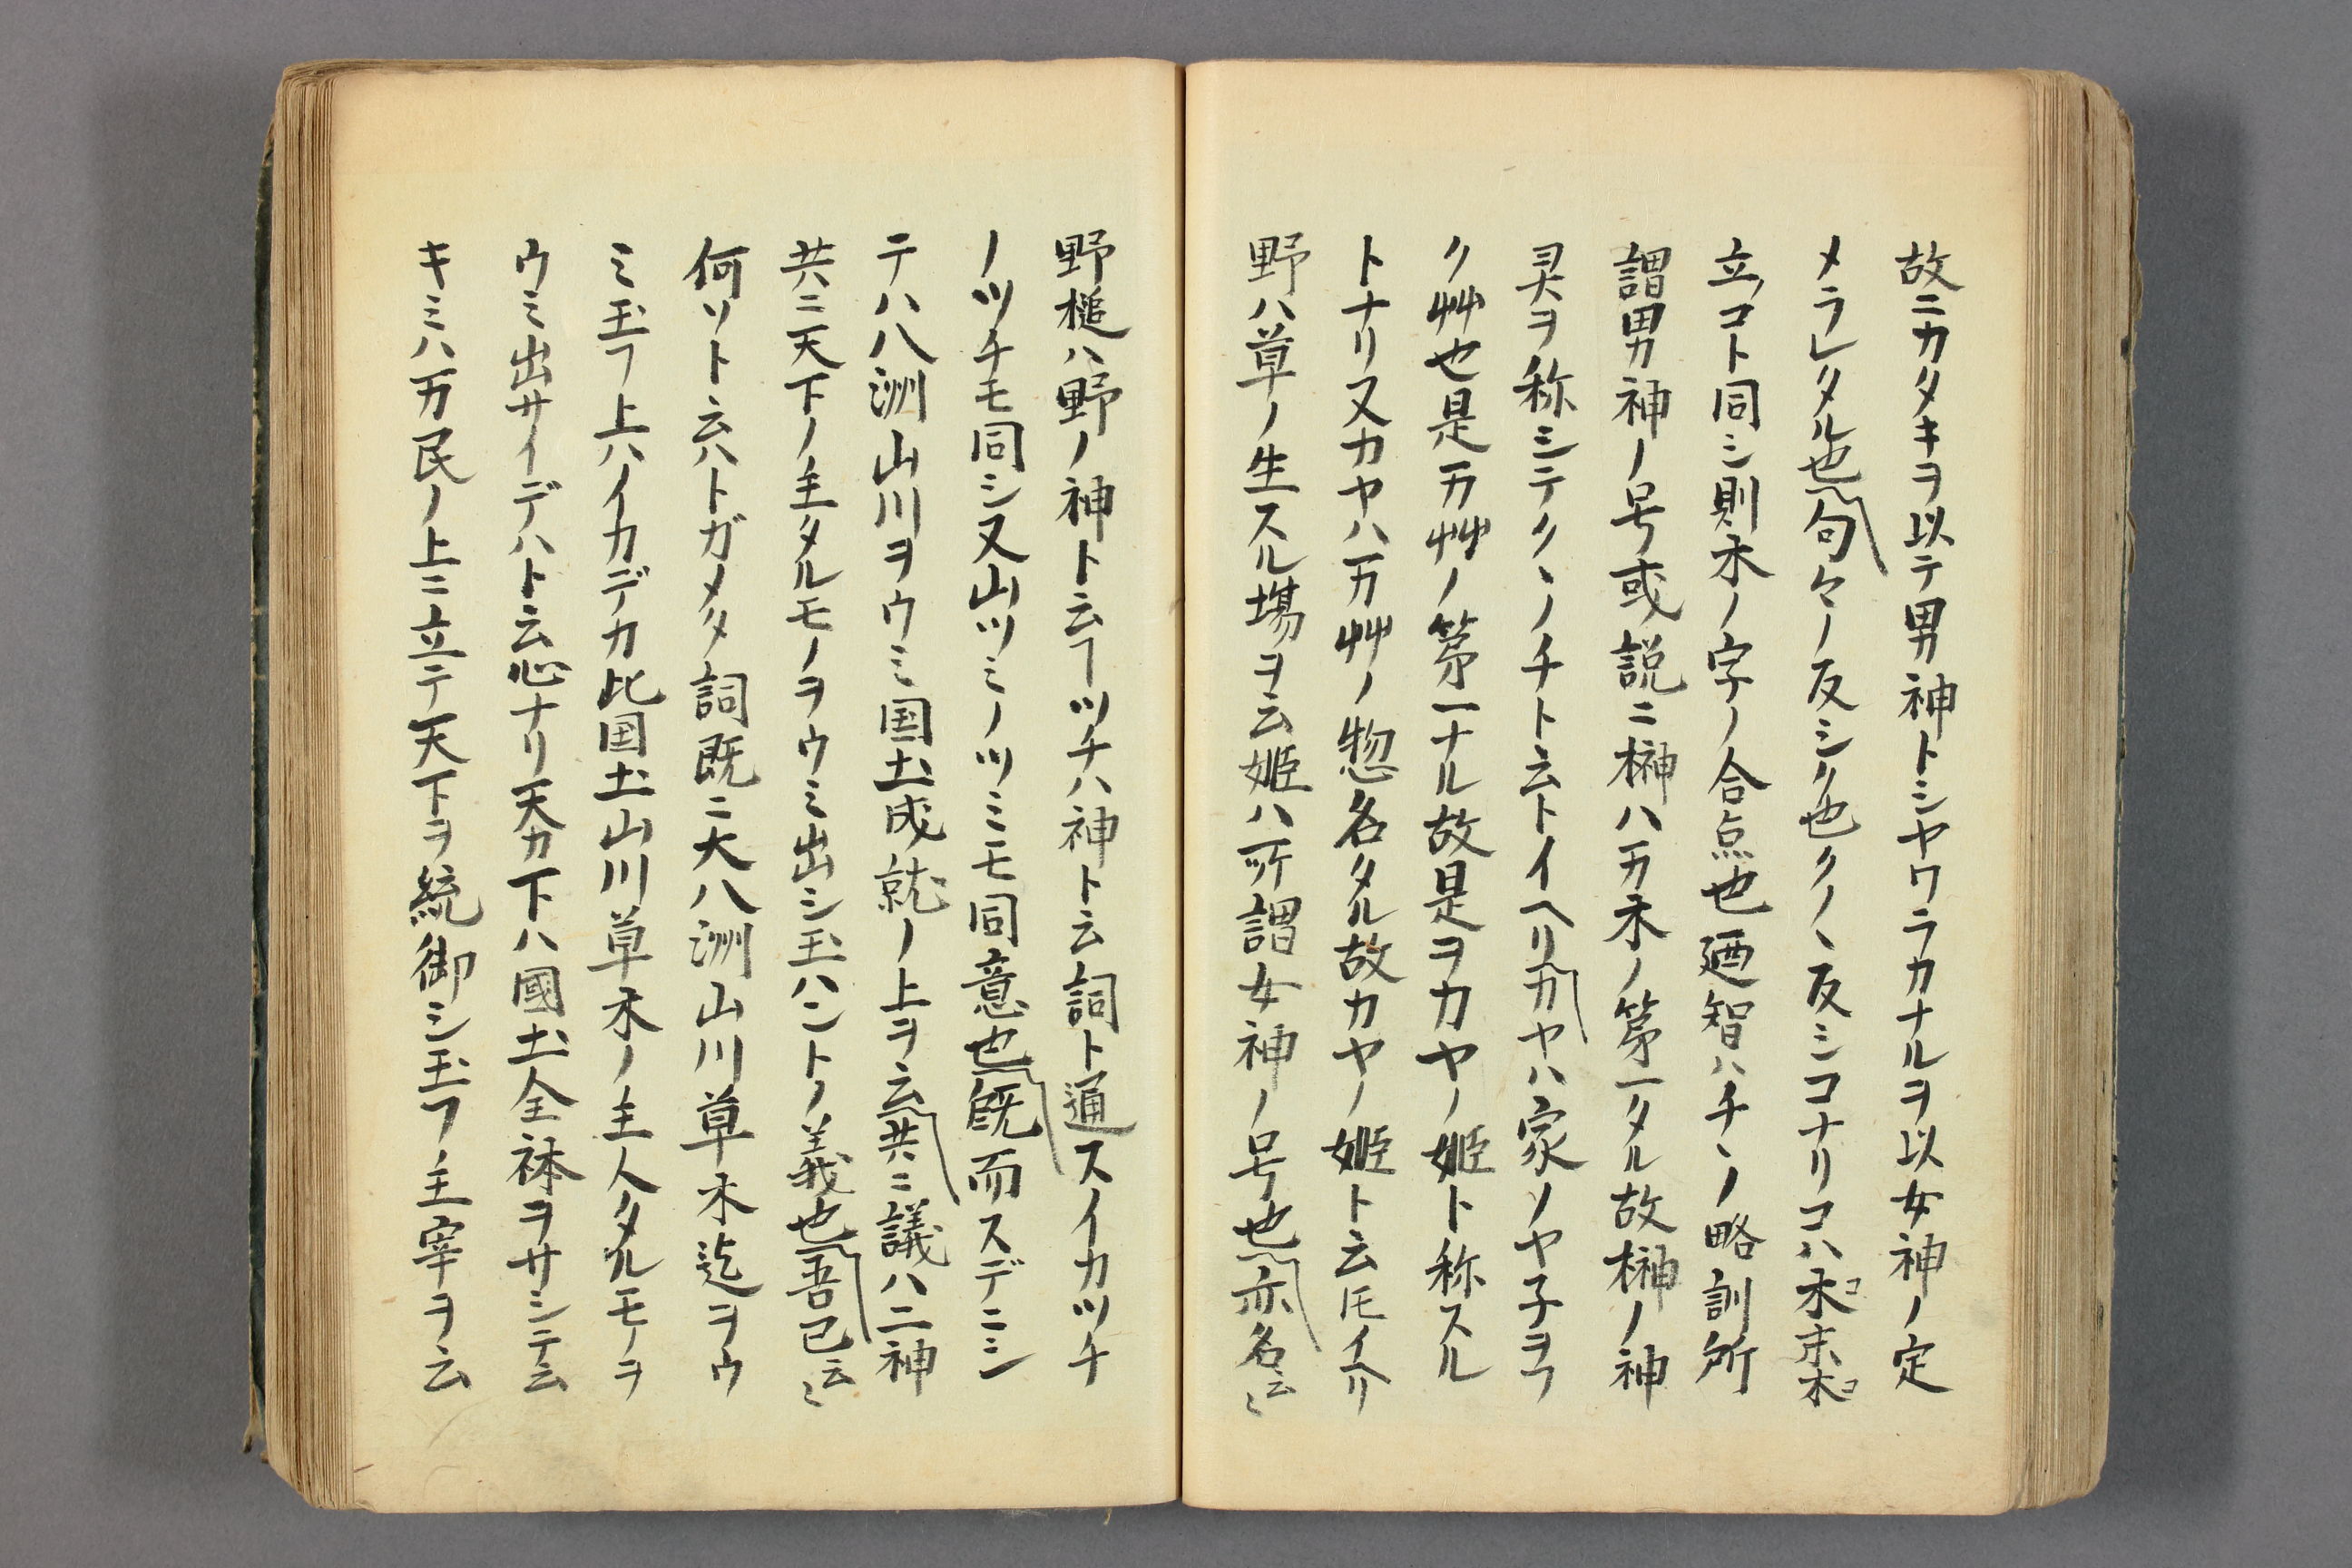 故ニカタキヲ以テ男神トシヤワラカナルヲ以女神ノ定
メラレタル也句々ノ反シク也クノヽ反シコナリコハ木コ末木コ
立コト同シ則木ノ字ノ合点也廼智ハチヽノ略訓所
謂男神ノ号或説ニ榊ハ万木ノ第一タル故榊ノ神
灵ヲ称シテクヽノチト云トイヘリカヤハ家ノヤ子ヲフ
ク艸也是万艸ノ第一ナル故是ヲカヤノ姫ト称スル
トナリ又カヤハ万艸ノ惣名タル故カヤノ姫ト云𪜈イヘリ
野ハ草ノ生スル場ヲ云姫ハ所謂女神ノ号也亦名云ミ
野槌ハ野ノ神ト云ヿツチハ神ト云詞ト通スイカツチ
ノツチモ同シ又山ツミノツミモ同意也既而スデニシ
テハ八洲山川ヲウミ国土成就ノ上ヲ云共ニ議ハ二神
共ニ天下ノ主タルモノヲウミ出シ玉ハントノ義也吾已云ミ
何ソト云ハトガメタ詞既ニ大八洲山川草木迄ヲウ
ミ玉フ上ハイカデカ此国土山川草木ノ主人タルモノヲ
ウミ出サイデハト云心ナリ天カ下ハ國土全体ヲサシテ云
キミハ万民ノ上ニ立テ天下ヲ統御シ玉フ主宰ヲ云